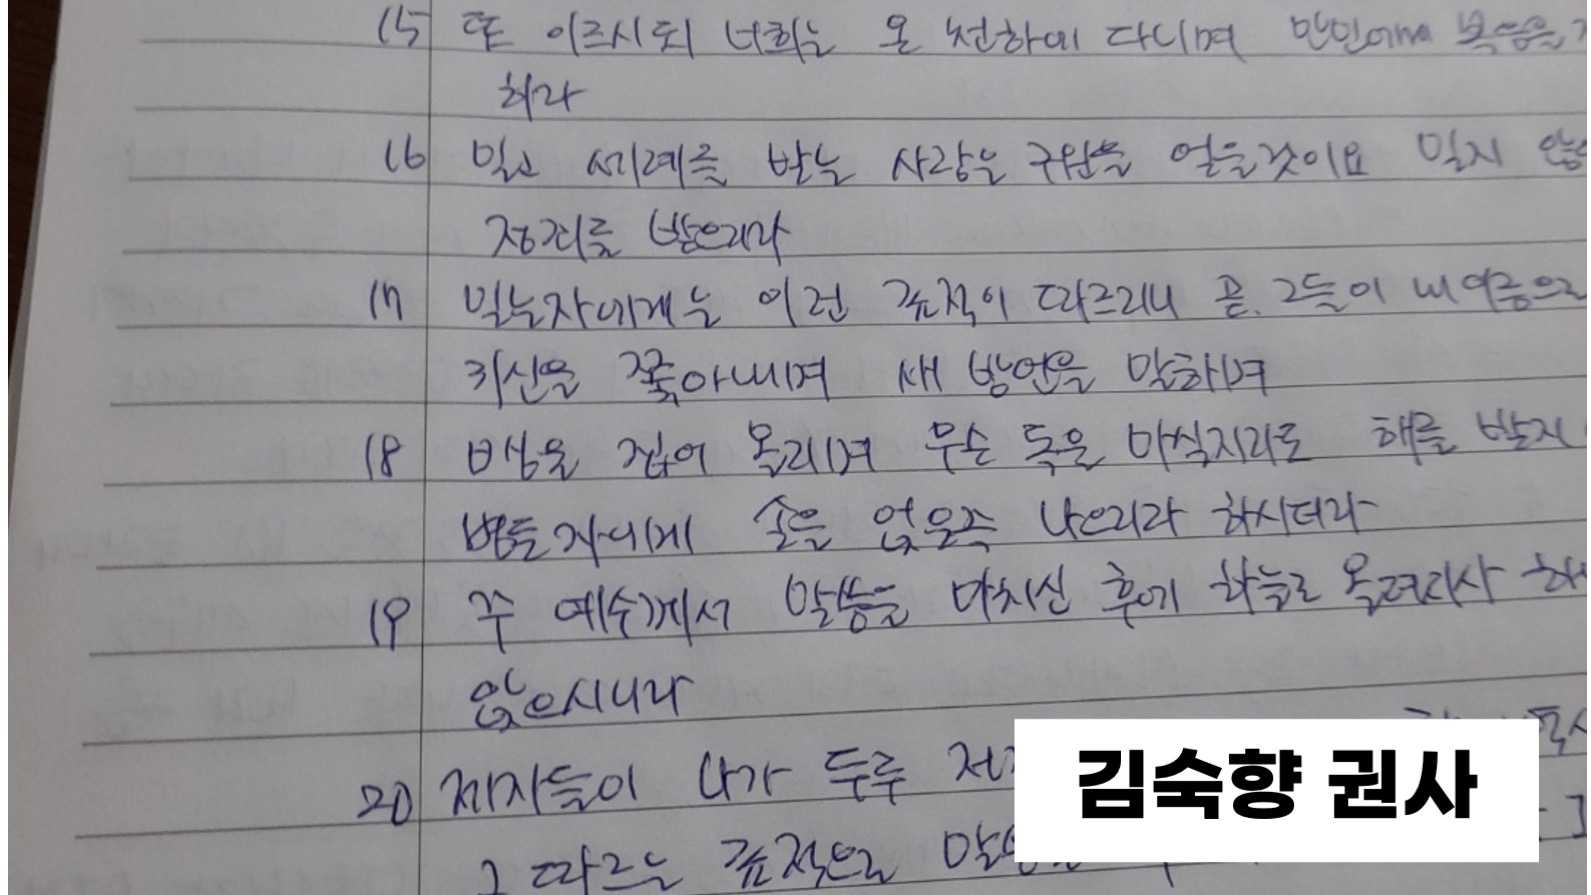 15 또 이르시되 너희는 온 천하에 다니며 만민에게 복음을
하라
16 믿고 세례를 받는 사람은 구원을 얻을것이요 믿지 않
정죄를 받으리라
17 믿는자에게는 이런 표적이 따르리니 곧 그들이 내 이름으로
귀신을 쫓아내며 새 방언을 말하며
18 뱀을 집어 올리며 무슨 독을 마실지라도 해를 받지
병든 자에게 손을 얹은즉 나으리라 하시더라
19 주 예수께서 말씀을 마치신 후에 하늘로 올려지사 하
앉으시니라
20 제자들이 나가 두루 전
그 따르는 표적으로 말
김숙향 권사